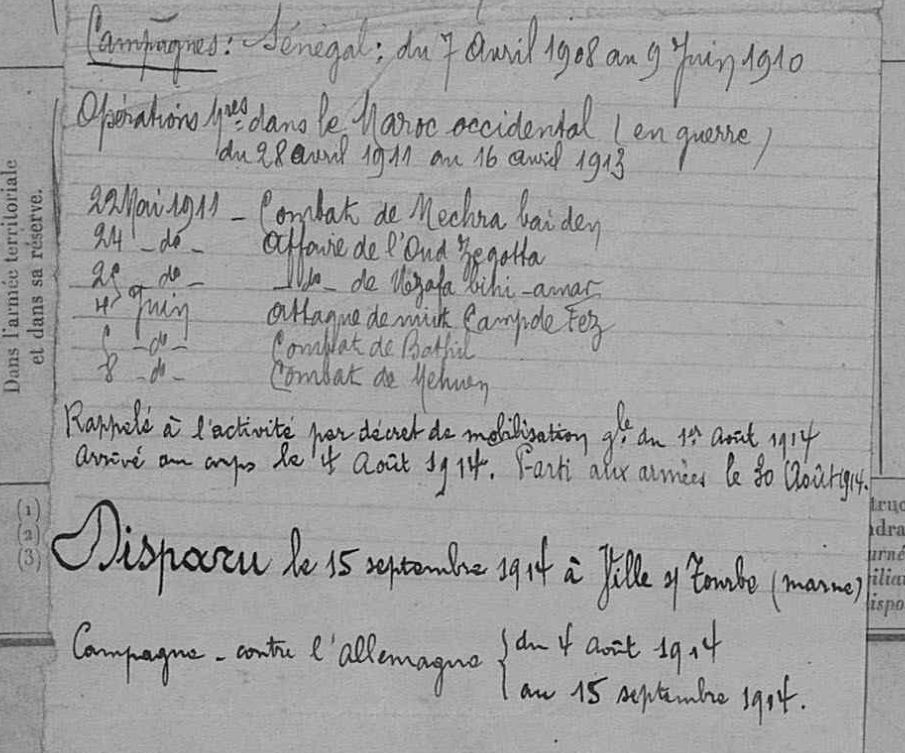 Campagnes: Sénégal: du 7 Avril 1908 au 9 Juin 1910
Opérations Mres dans le Maroc occidental (en guerre)
du 28 avril 1911 au 16 avril 1913
22 Mai 1911 - Combat de Mechra
24 - do - Affaire de l'Oud Zegotta
25 - do - do - de
4 Juin Attaque de Camp de Fez
6 - do - Combat de
8 - do - Combat de
Rappelé à l'activité par décret de mobilisation gle du 1er Août 1914
Arrivé au corps le 4 Août 1914. Parti aux armées le 20 Août 1914.
Disparu le 15 septembre 1914 à Ville s/ Tourbe (marne)
Campagne - contre l'allemagne { du 4 Août 1914
au 15 septembre 1914.
Dans l'armée territoriale
et dans sa réserve.
(1)
(2)
(3)